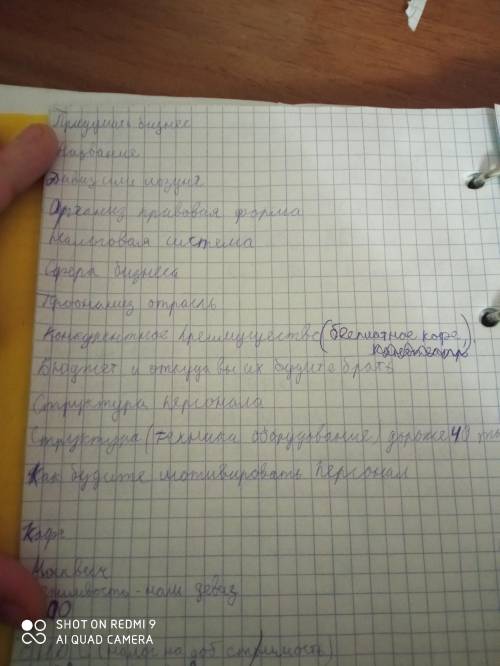 Придумать бизнес
Название
Девиз или лозунг
Организ правовая форма
Налоговая система
Сфера бизнеса
отрасль
Конкурентное преимущество (бесплатное кофе,
Бюджет и откуда вы их будите брать
Структура персонала
Структура (техника оборудование) дороже 40 ты
Как будите мотивировать персонал
Кафе
Москвич
наш девиз
ОО
(налог на доб стоимость)
SHOT ON REDMI 9
AI QUAD CAMERA